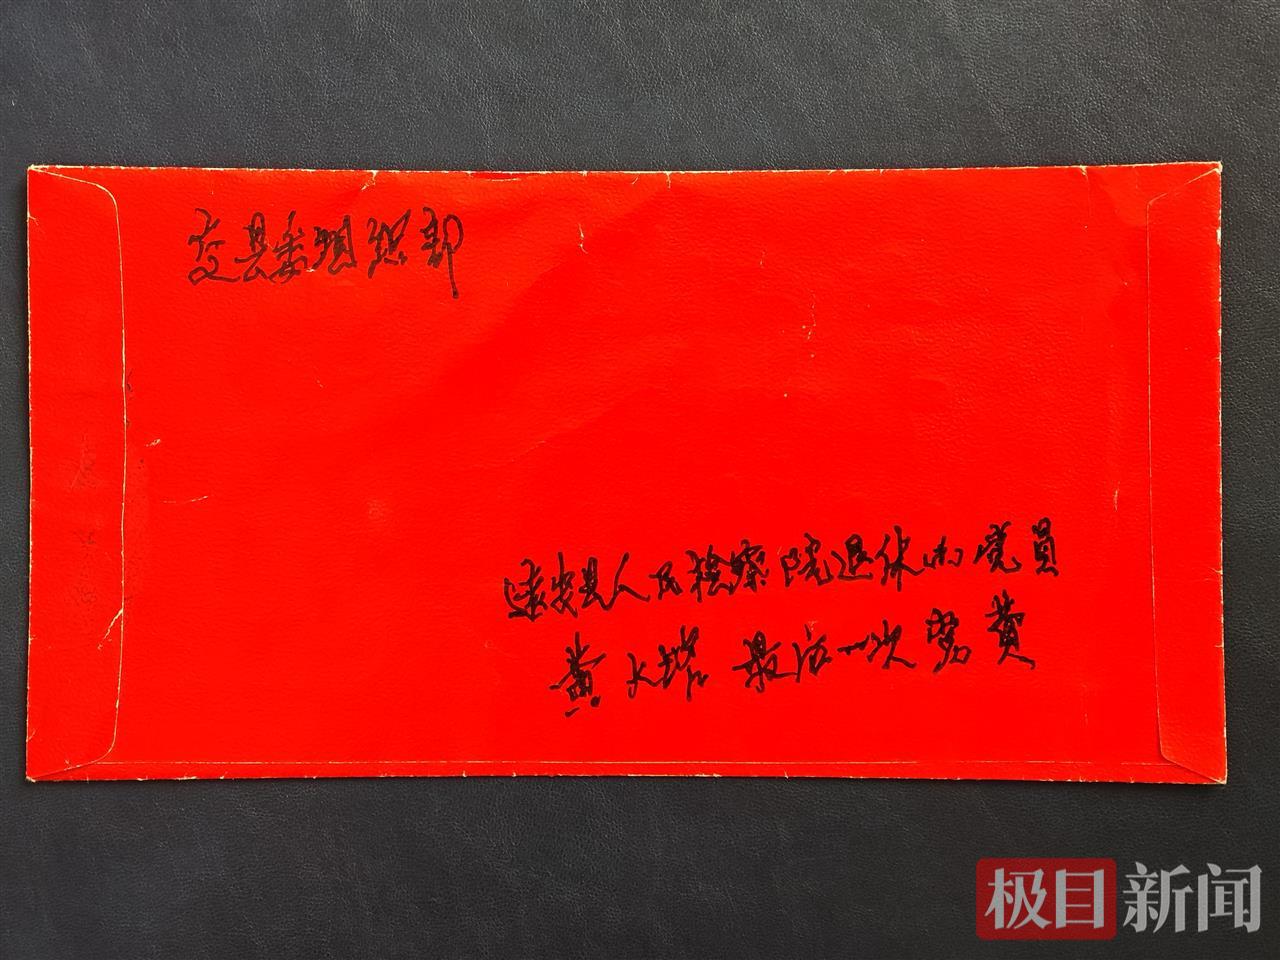 交县委组织部
远安县人民检察院退休的党员
黄大塔 最后一次党费
极目新闻